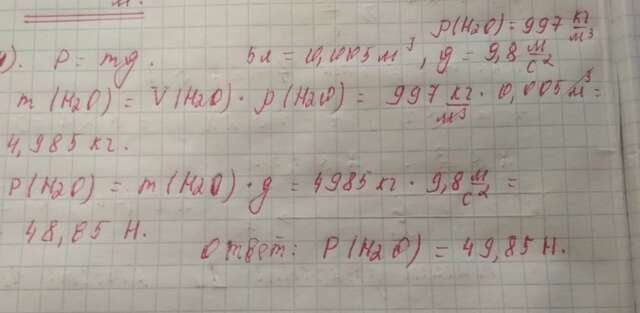 м.
ρ(H₂O) = 997 кг/м³
). P = mg. 5л = 0,005 м³, g = 9,8 м/с²
m (H₂O) = V(H₂O) · ρ(H₂O) = 997 кг/м³ · 0,005 м³ =
4,985 кг.
P(H₂O) = m(H₂O) · g = 4985 кг · 9,8 м/с² =
48,85 Н.
Ответ: P(H₂O) = 49,85 Н.